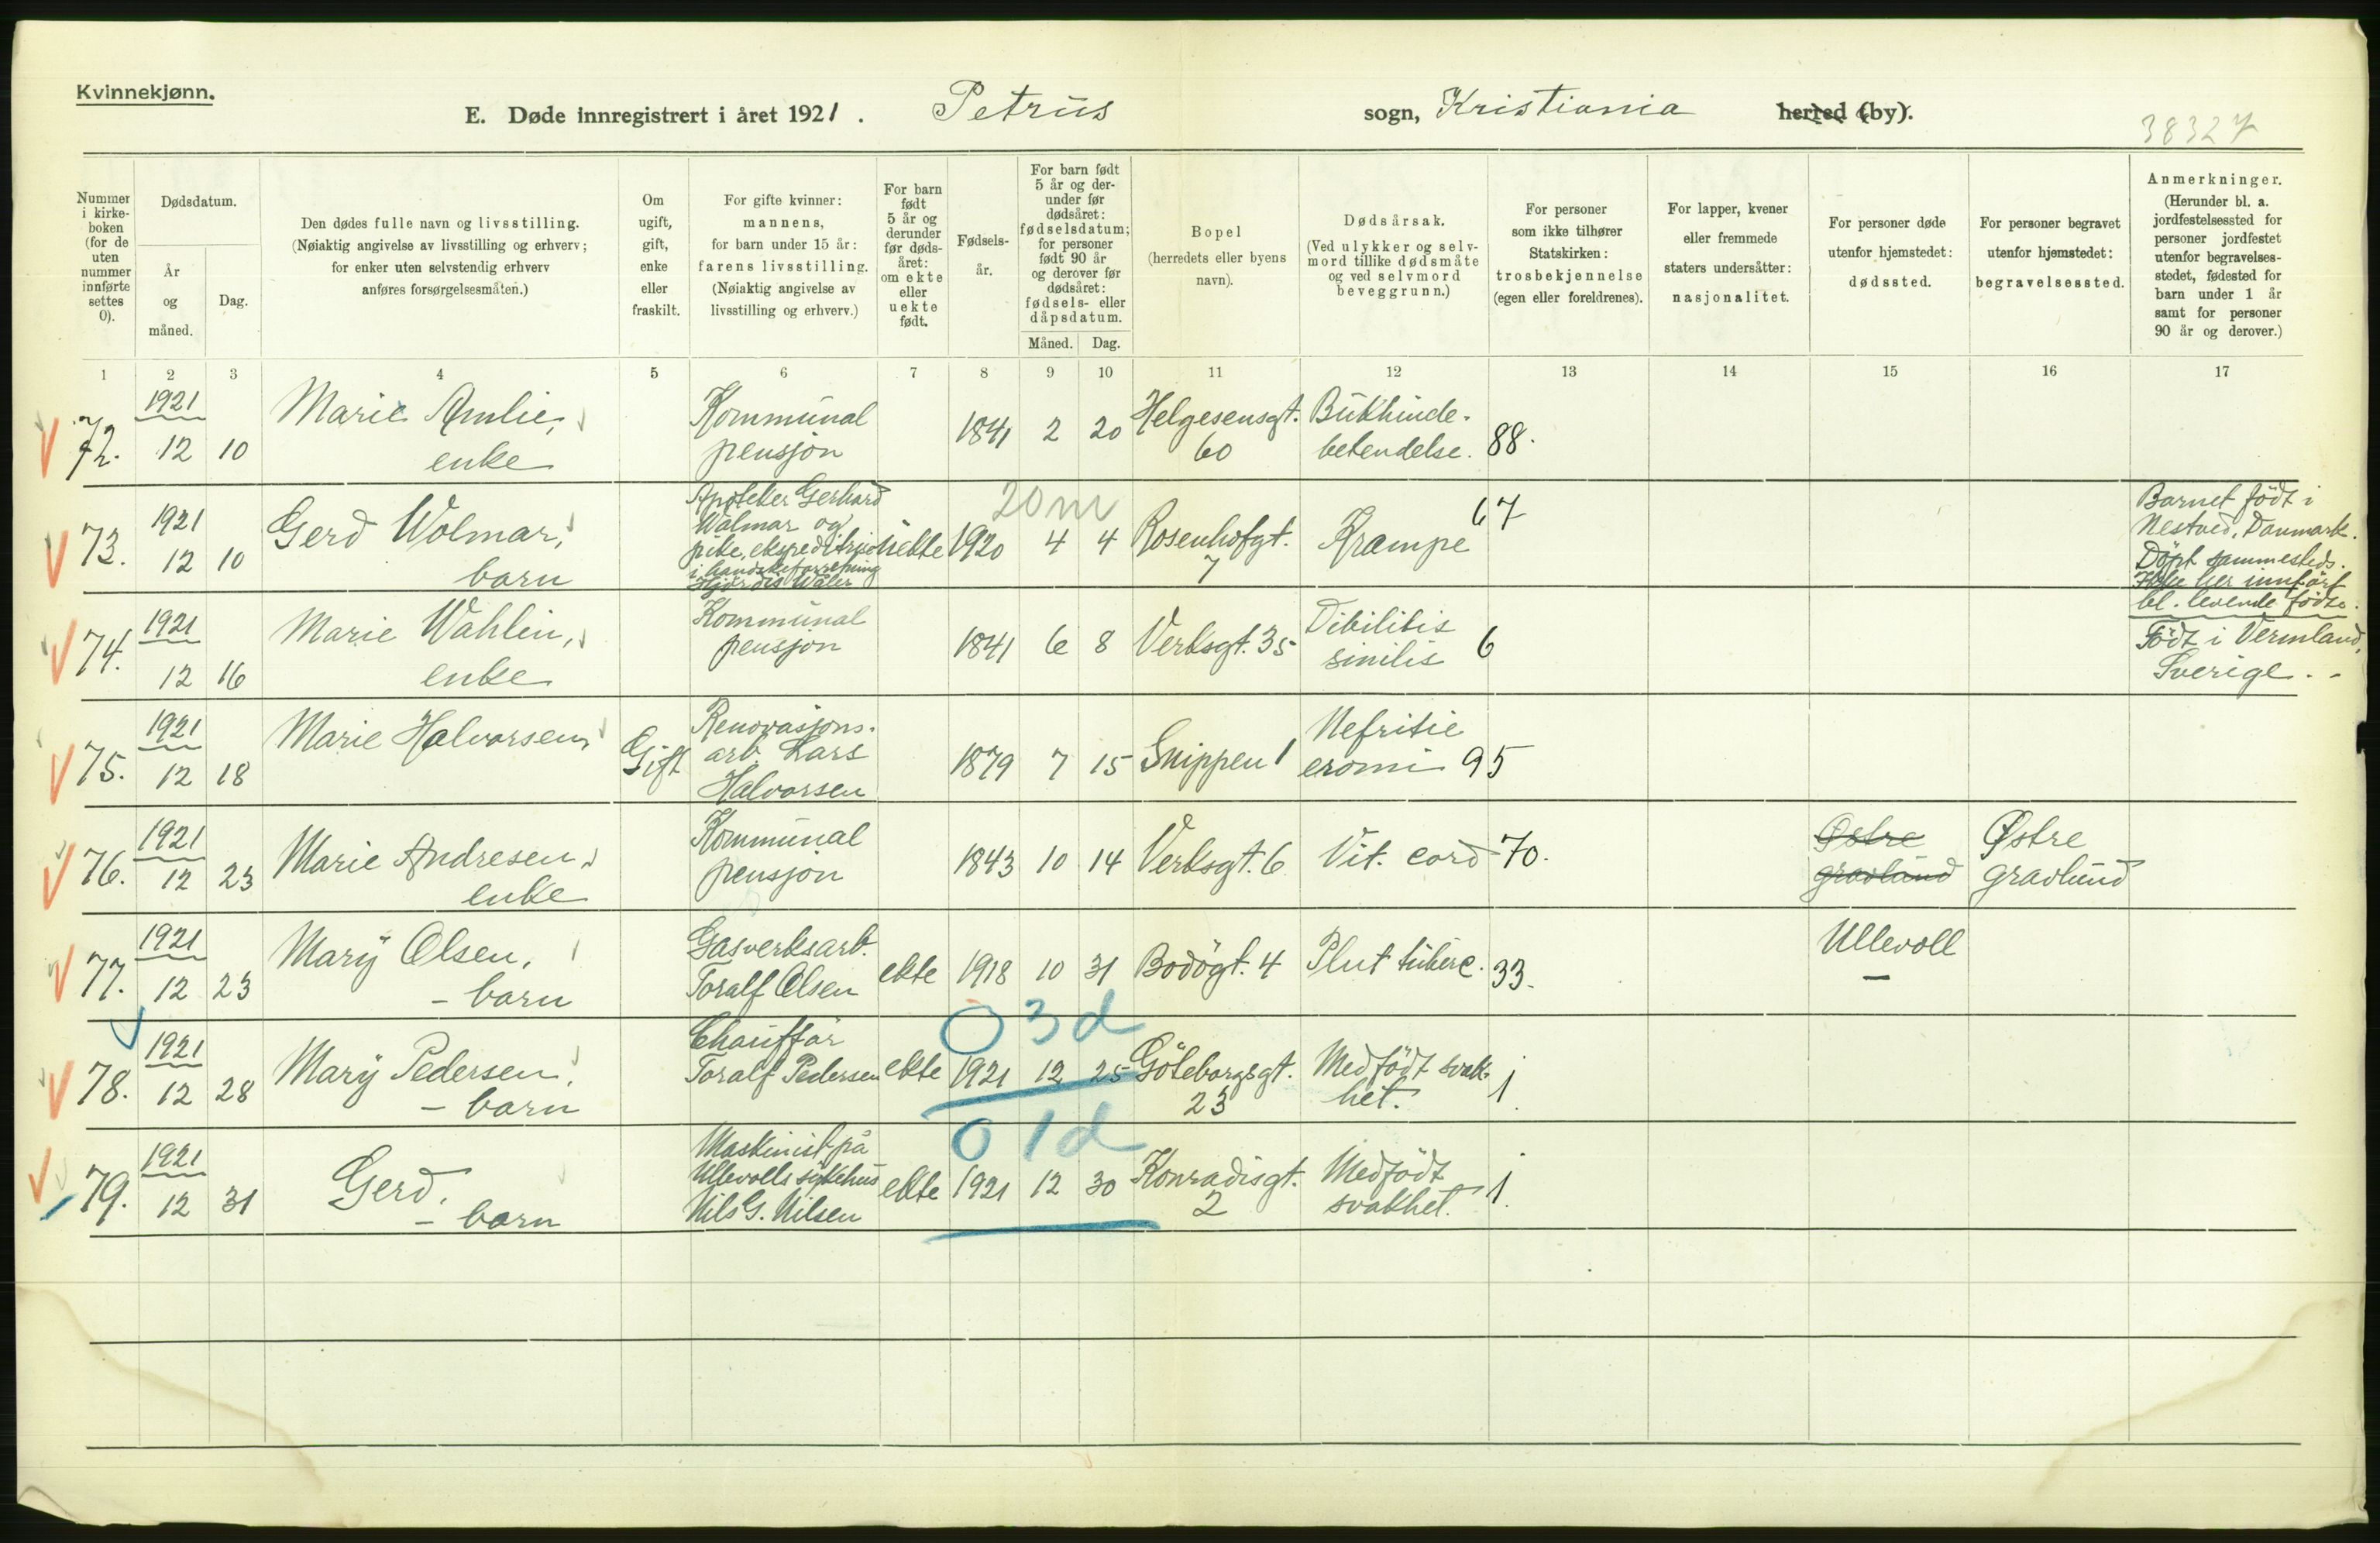 Kvinnekjønn.
E. Døde innregistrert i året 1921. Petrus sogn, Kristiania herred (by).
38327
Nummer i kirkeboken (for de uten nummer innførte settes 0).
Dødsdatum.
År og måned.
Dag.
Den dødes fulle navn og livsstilling.
(Nøiaktig angivelse av livsstilling og erhverv;
for enker uten selvstendig erhverv
anføres forsørgelsesmåten.)
Om
ugift,
gift,
enke
eller
fraskilt.
For gifte kvinner:
mannens,
for barn under 15 år:
farens livsstilling.
(Nøiaktig angivelse av
livsstilling og erhverv.)
For barn
født
5 år og
derunder
før døds-
året:
om ekte
eller
uekte
født.
Fødsels-
år.
For barn født
5 år og der-
under før
dødsåret:
fødselsdatum;
for personer
født 90 år
og derover før
dødsåret:
fødsels- eller
dåpsdatum.
Måned. Dag.
Bopel
(herredets eller byens
navn).
Dødsårsak.
(Ved ulykker og selv-
mord tillike dødsmåte
og ved selvmord
beveggrunn.)
For personer
som ikke tilhører
Statskirken:
trosbekjennelse
(egen eller foreldrenes).
For lapper, kvener
eller fremmede
staters undersåtter:
nasjonalitet.
For personer døde
utenfor hjemstedet:
dødssted.
For personer begravet
utenfor hjemstedet:
begravelsessted.
Anmerkninger.
(Herunder bl. a.
jordfestelsessted for
personer jordfestet
utenfor begravelses-
stedet, fødested for
barn under 1 år
samt for personer
90 år og derover.)
1 2 3 4 5 6 7 8 9 10 11 12 13 14 15 16 17
72. 1921 12 10 Marie Amlie, enke
Kommunal pensjon
1841 2 20 Helgesensgt. 60
Bukhinde-
betendelse. 88.
73. 1921 12 10 Gerd Wolmar, barn
Apoteker Gerhard
Wolmar og
pike, ekspeditrise
i handskeforretning
Hjørdis Waler
uekte 1920 4 4 20 m
Rosenhofgt. 7
Krampe 67
Barnet født i
Nestved, Danmark.
Döpt sammesteds.
Ikke her innført
bl. levende födte.
74. 1921 12 16 Marie Wahlin, enke
Kommunal pensjon
1841 6 8 Verksgt. 35
Dibilitis
sinilis 6
Född i Vermland,
Sverige.
75. 1921 12 18 Marie Halvorsen,
Gift
Renovasjons-
arb. Lars
Halvorsen
1879 7 15 Snippen 1
Nefritie
eromi 95
76. 1921 12 23 Marie Andresen, enke
Kommunal pensjon
1843 10 14 Verksgt. 6
Vit. cord 70.
Østre
gravlund
Østre
gravlund
77. 1921 12 23 Mary Olsen, - barn
Gasverksarb.
Toralf Olsen
ekte 1918 10 31 Bodögt. 4
Plut tuberc. 33.
Ullevoll
78. 1921 12 28 Mary Pedersen, - barn
Chauffør
Toralf Pedersen
ekte 1921 12 25 0 3 d
Göteborgsgt.
23
Medfödt svak-
het. 1.
79. 1921 12 31 Gerd. - barn
Maskinist på
Ullevolls sykehus
Nils G. Nilsen
ekte 1921 12 30 0 1 d
Konradisgt.
2
Medfödt
svakhet. 1.